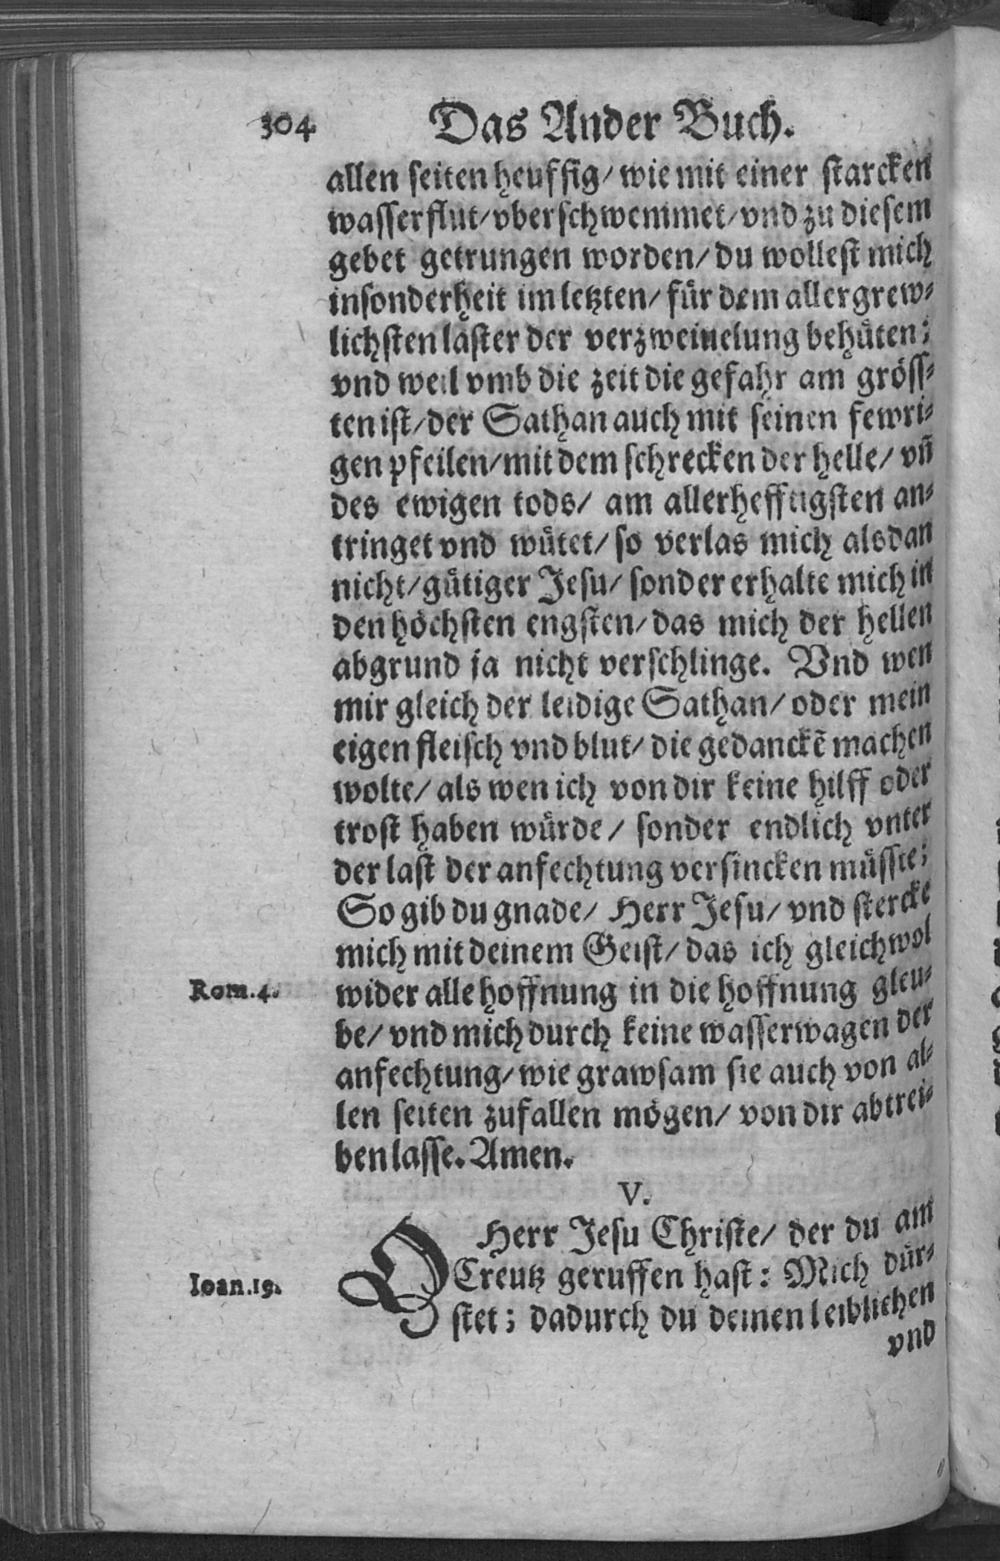 304 Das Ander Buch.
allen seiten heuffig/ wie mit einer starcken
wasserflut/ vberschwemmet/ vnd zu diesem
gebet getrungen worden/ du wollest mich
insonderheit im letzten/ für dem allergrew⸗
lichsten laster der verzweiuelung behüten;
vnd weil vmb die zeit die gefahr am gröss⸗
ten ist/ der Sathan auch mit seinen fewri⸗
gen pfeilen/ mit dem schrecken der helle/ vn̄
des ewigen tods/ am allerhefftigsten an⸗
tringet vnd wütet/ so verlas mich alsdan
nicht/ gütiger Jesu/ sonder erhalte mich in
den höchsten engsten/ das mich der hellen
abgrund ja nicht verschlinge. Vnd wen
mir gleich der leidige Sathan/ oder mein
eigen fleisch vnd blut/ die gedanckē machen
wolte/ als wen ich von dir keine hilff oder
trost haben würde/ sonder endlich vnter
der last der anfechtung versincken müsste;
So gib du gnade/ Herr Jesu/ vnd stercke
mich mit deinem Geist/ das ich gleichwol
Rom.4. wider alle hoffnung in die hoffnung gleu⸗
be/ vnd mich durch keine wasserwagen der
anfechtung/ wie grawsam sie auch von al⸗
len seiten zufallen mögen/ von dir abtrei⸗
ben lasse. Amen.
V.
O Herr Jesu Christe/ der du am
Ioan.19. Creutz geruffen hast: Mich dür⸗
stet; dadurch du deinen leiblichen
vnd